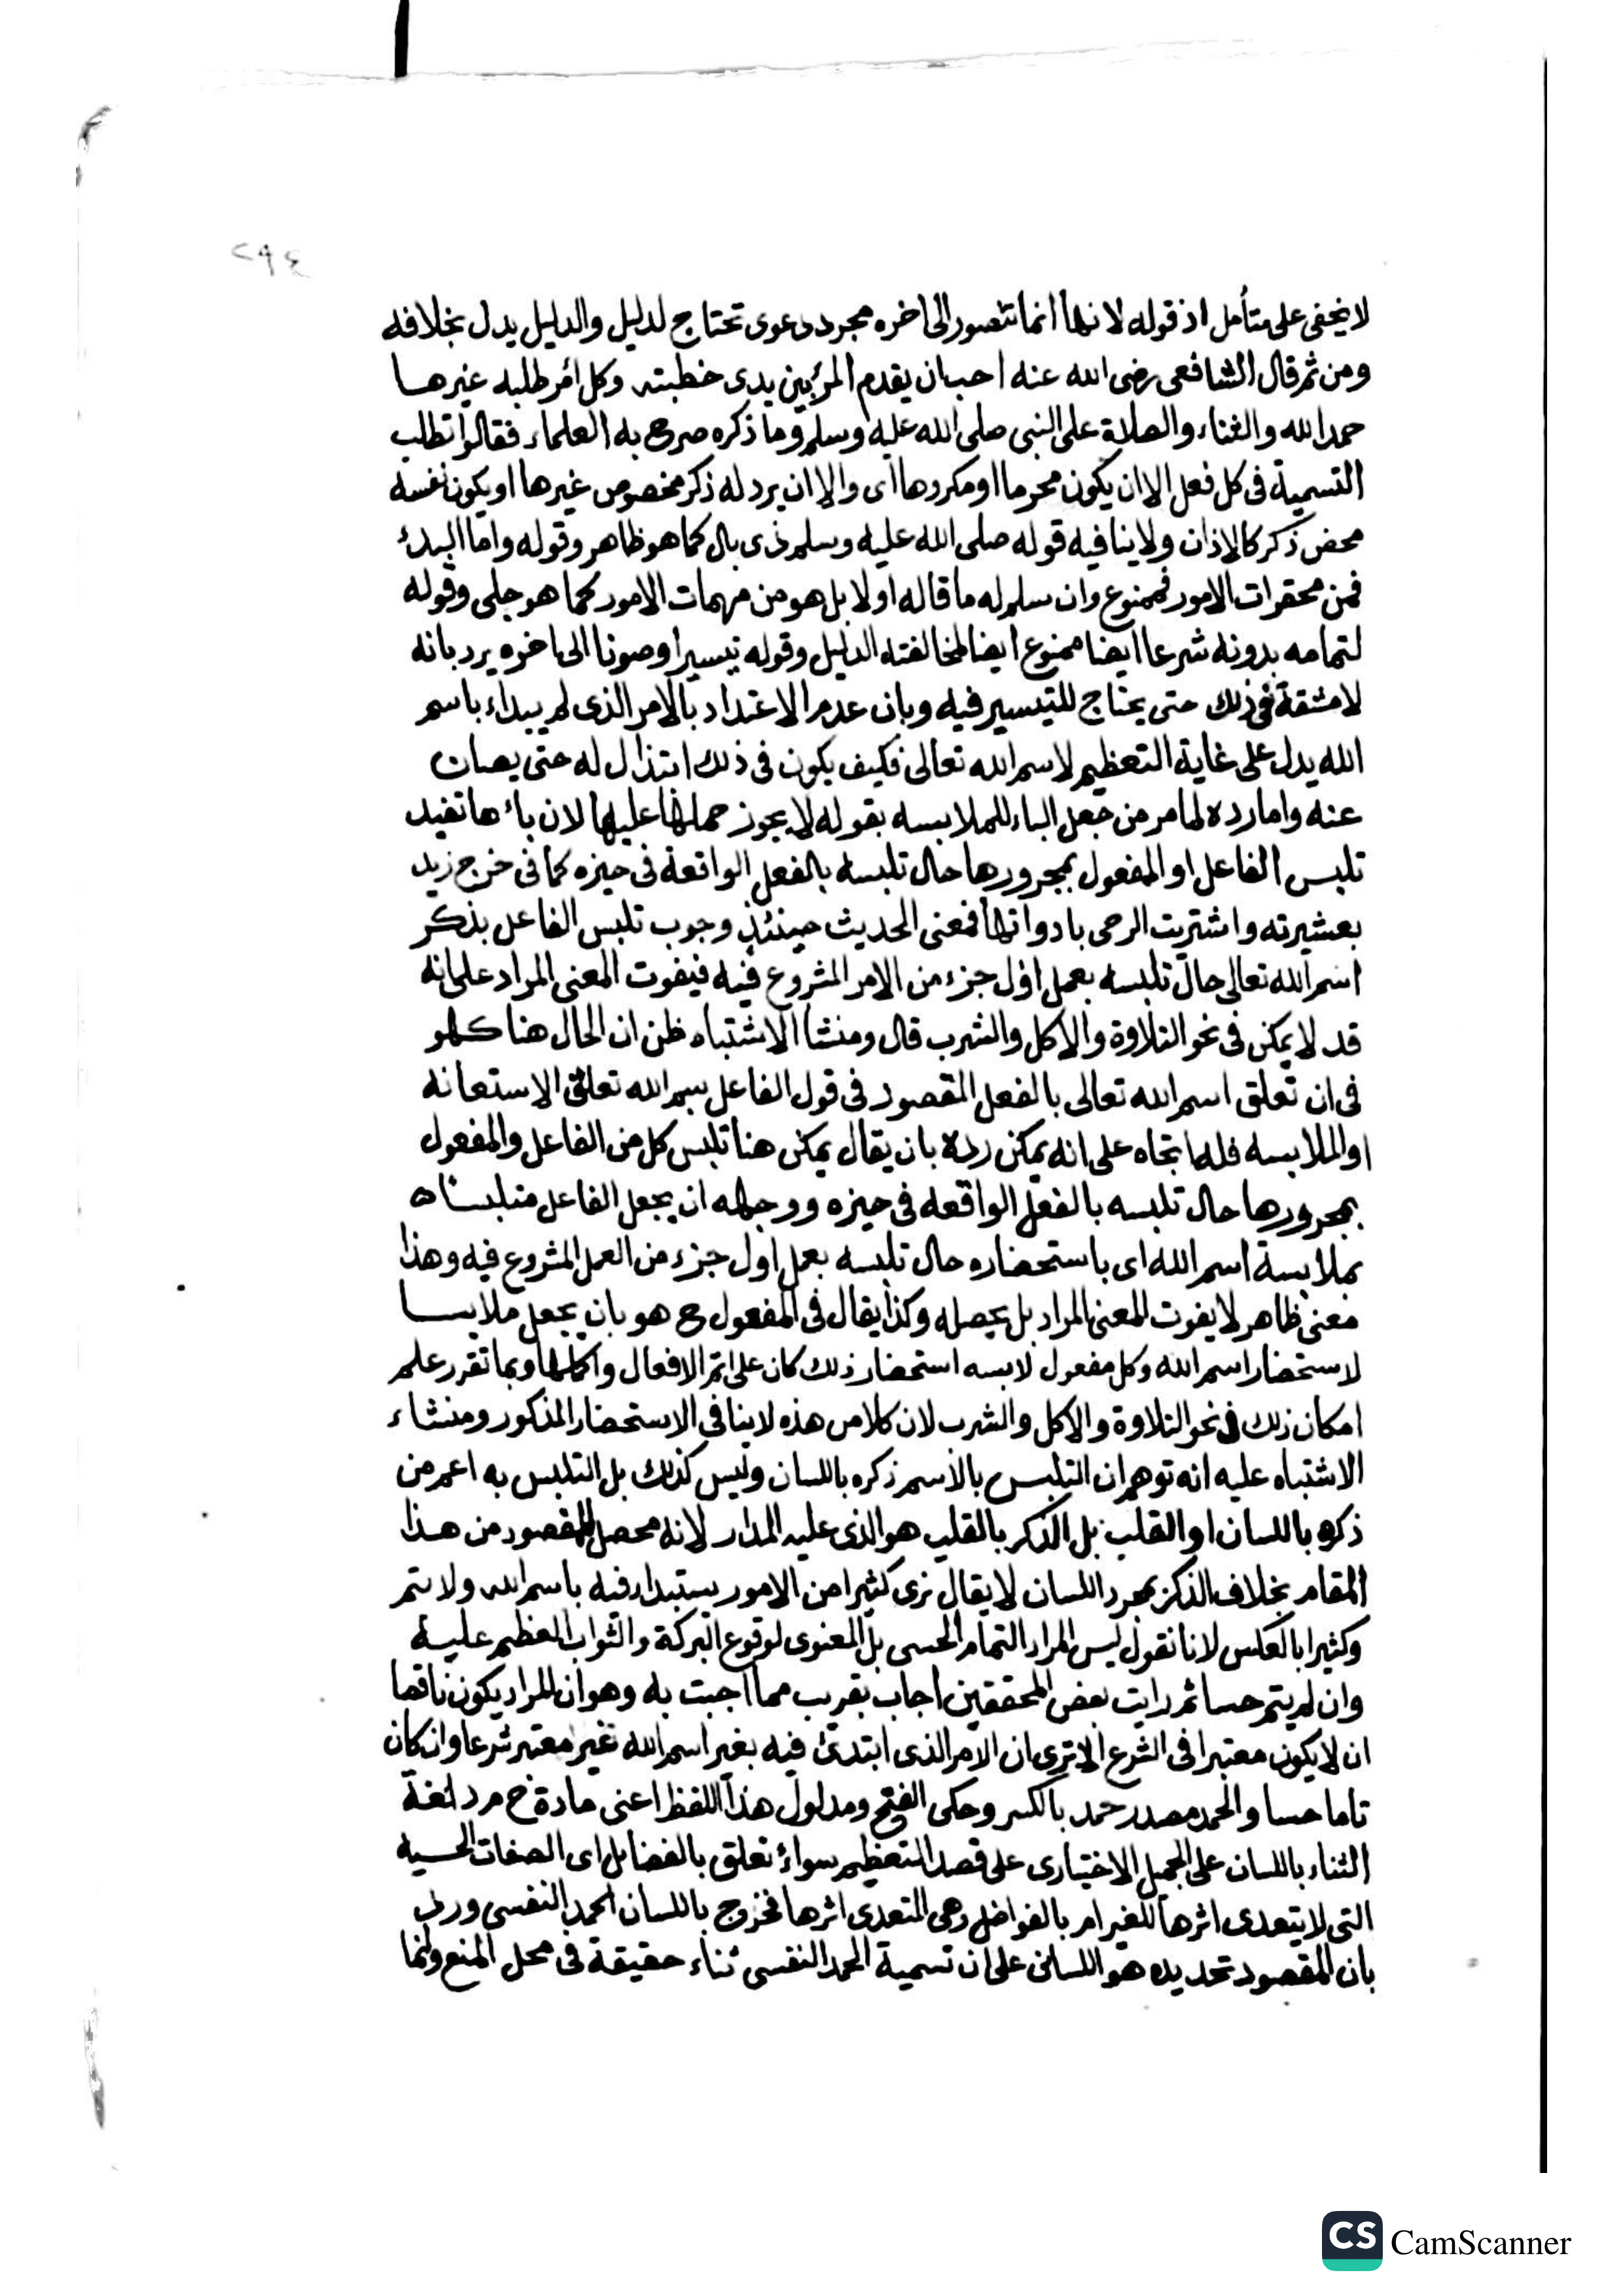 ٢٩٤
لا يخفى على متأمل اذ قوله لانها انما تتصور الى اخره مجرد دعوى تحتاج لدليل والدليل يدل بخلافه
ومن ثم قال الشافعى رضى الله عنه احب ان يقدم المرء بين يدى خطبته وكل امر طلبه غيرها
حمد الله والثناء والصلاة على النبى صلى الله عليه وسلم وما ذكره صرح به العلماء فقالوا تطلب
التسمية فى كل فعل الا ان يكون محرما او مكروها اى والا ان يرد له ذكر مخصوص غيرها او يكون نفسه
محض ذكر كالاذان ولا ينافيه قوله صلى الله عليه وسلم ذى بال كما هو ظاهر وقوله واما البدئ
فمن محقرات الامور فممنوع وان سلم له ما قاله اولا بل هو من مهمات الامور كما هو جلى وقوله
لتمامه بدونه شرعا ايضا ممنوع ايضا لمخالفته الدليل وقوله تيسيرا وصونا الى اخره يرد بانه
لا مشقة فى ذلك حتى يحتاج للتيسير فيه وبان عدم الاعتداد بالامر الذى لم يبداء باسم
الله يدل على غاية التعظيم لاسم الله تعالى فكيف يكون فى ذلك ابتذال له حتى يصان
عنه واما رده لما مر من جعل الباء للملابسه بقوله لا يجوز حملها عليها لان باءها تفيد
تلبس الفاعل او المفعول بمجرورها حال تلبسه بالفعل الواقعة فى حيزه كما فى خرج زيد
بعشيرته واشتريت الرحى بادواتها فمعنى الحديث حينئذ وجوب تلبس الفاعل بذكر
اسم الله تعالى حال تلبسه بعمل اول جزء من الامر المشروع فيه فيفوت المعنى المراد على انه
قد لا يمكن فى نحو التلاوة والاكل والشرب قال ومنشأ الاشتباه ظن ان الحال هنا كهو
فى ان تعلق اسم الله تعالى بالفعل المقصود فى قول الفاعل بسم الله تعلق الاستعانه
او الملابسه فله اتجاه على انه يمكن رده بان يقال يمكن هنا تلبس كل من الفاعل والمفعول
بمجرورها حال تلبسه بالفعل الواقعه فى حيزه ووجهه ان يجعل الفاعل متلبسا
بملابسة اسم الله اى باستحضاره حال تلبسه بعمل اول جزء من العمل المشروع فيه وهذا
معنى ظاهر لا يفوت للمعنى المراد بل يحصله وكذا يقال فى المفعول ح هو بان يجعل ملابسا
لاستحضار اسم الله وكل مفعول لابسه استحضار ذلك كان على اتم الافعال واكملها وبما تقرر علم
امكان ذلك فى نحو التلاوة والاكل والشرب لان كلا من هذه لا ينافى الاستحضار المذكور ومنشاء
الاشتباه عليه انه توهم ان التلبس بالاسم ذكره باللسان وليس كذلك بل التلبس به اعم من
ذكره باللسان او القلب بل الذكر بالقلب هو الذى عليه المدار لانه محصل للمقصود من هذا
المقام بخلاف الذكر بمجرد اللسان لا يقال نرى كثيرا من الامور يستبداء فيه باسم الله ولا يتم
وكثيرا بالعكس لانا نقول ليس المراد التمام الحسى بل المعنوى لوقوع البركة والثواب العظيم عليه
وان لم يتم حسا ثم رايت بعض المحققين اجاب بقريب مما اجبت به وهو ان المراد يكون ناقصا
ان لا يكون معتبرا فى الشرع الا ترى ان الامر الذى ابتدئ فيه بغير اسم الله غير معتبر شرعا وان كان
تاما حسا والحمد مصدر حمد بالكسر وحكى الفتح ومدلول هذا اللفظ اعنى مادة ح م د لغة
الثناء باللسان على الجميل الاختيارى على قصد التعظيم سواء تعلق بالفضايل اى الصفات الحسيه
التى لا يتعدى اثرها للغير ام بالفواضل وهى المتعدى اثرها فخرج باللسان الحمد النفسى ورد
بان المقصود تحديده هو اللسانى على ان تسمية الحمد النفسى ثناء حقيقة فى محل المنع وانما
CS CamScanner